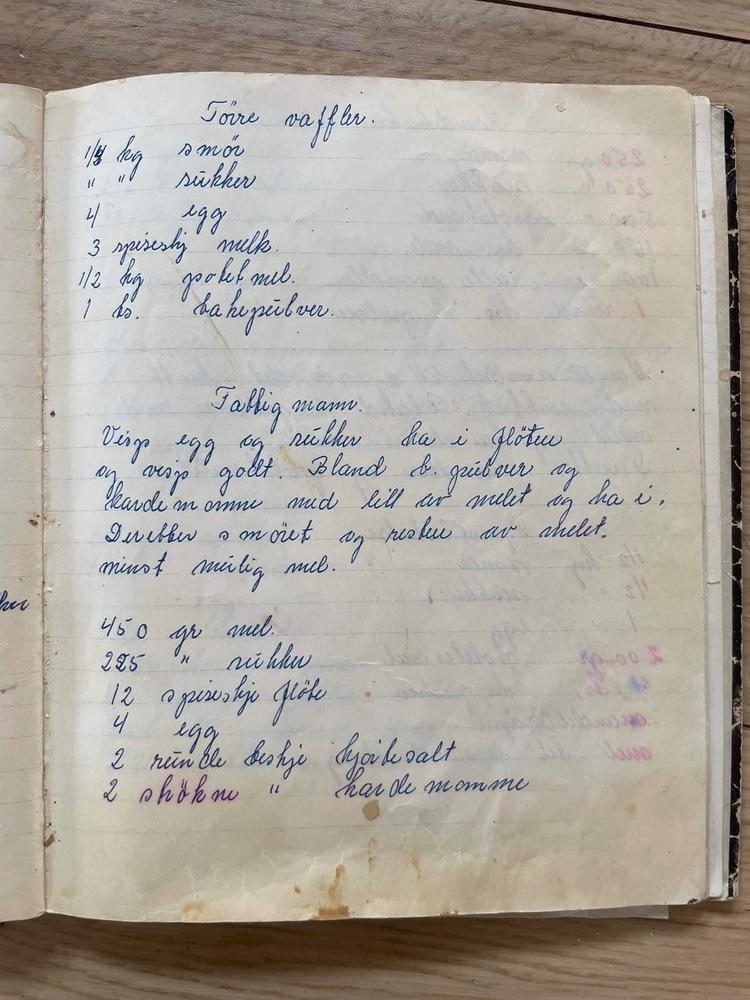 Törre vaffler.
1/4 kg smör
" " sukker
4 egg
3 spiseskj melk.
1/2 kg potetmel.
1 ts. bakepulver.
Fattigmann.
Visp egg og sukker ha i flöten
og visp godt. Bland b. pulver og
kardemomme med litt av melet og ha i.
Deretter smöret og resten av melet.
minst mulig mel.
450 gr mel.
225 " sukker
12 spiseskje flöte
4 egg
2 runde teskje hjortesalt
2 skökne " kardemomme